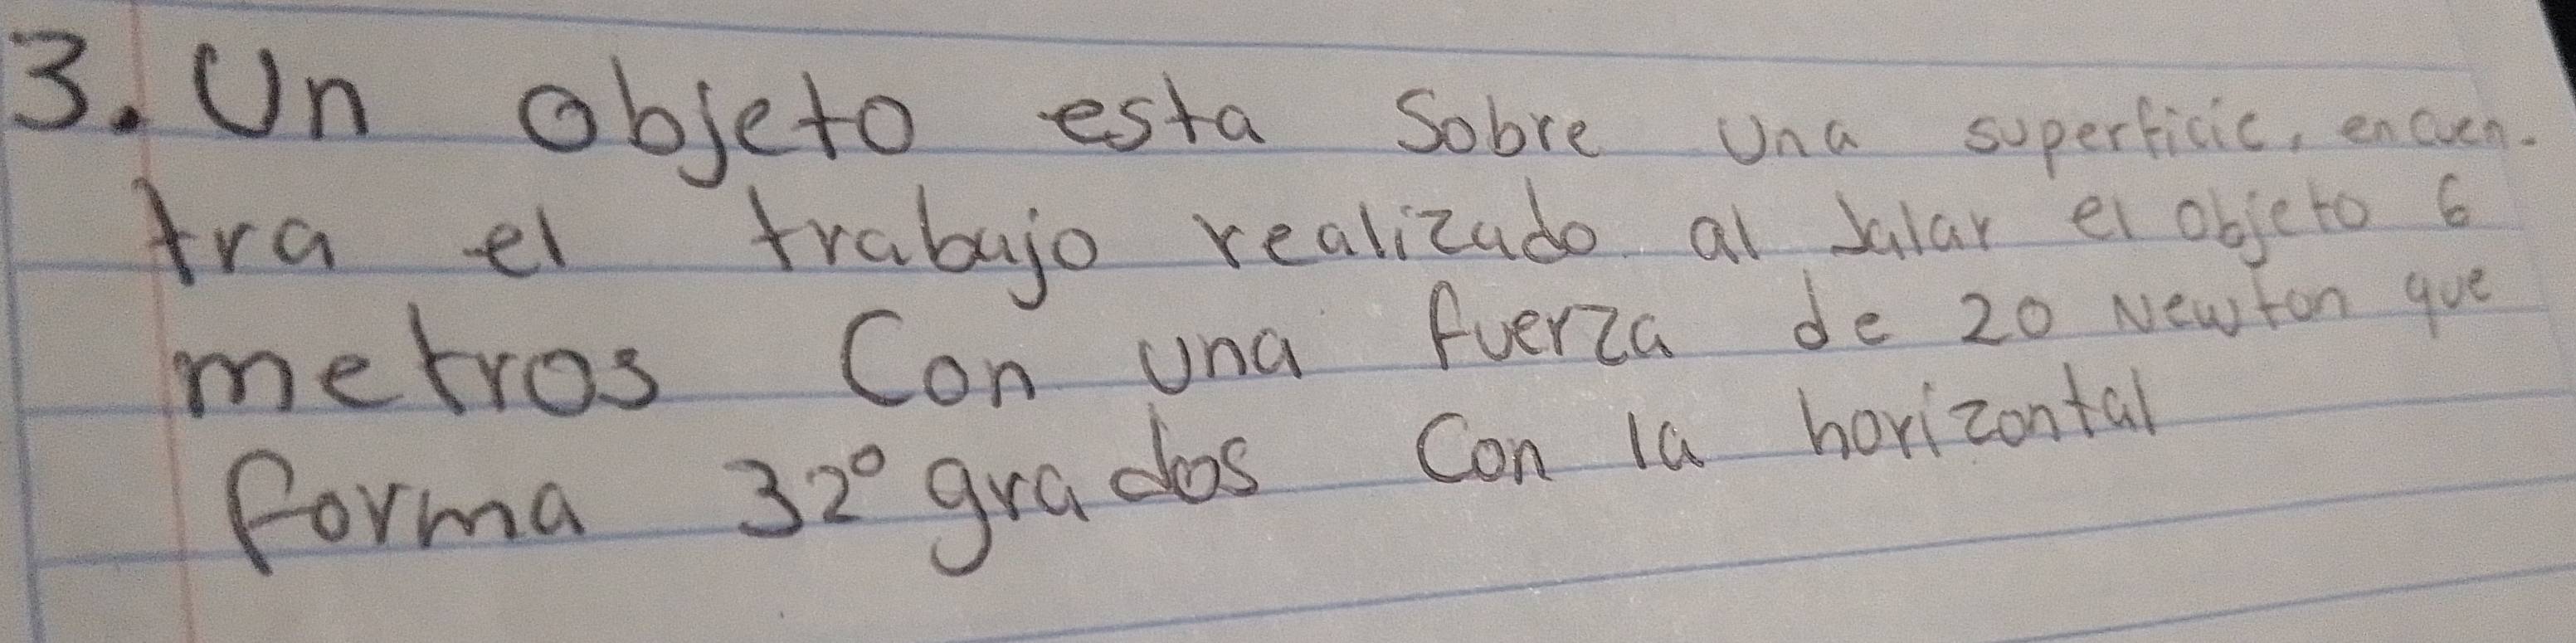 3. Un objeto esta sobre una superficie, encuen-
tra el trabajo realizado al Jalar el objeto 6
metros Con una fuerza de 20 Newton que
forma 32° grados Con la horizontal